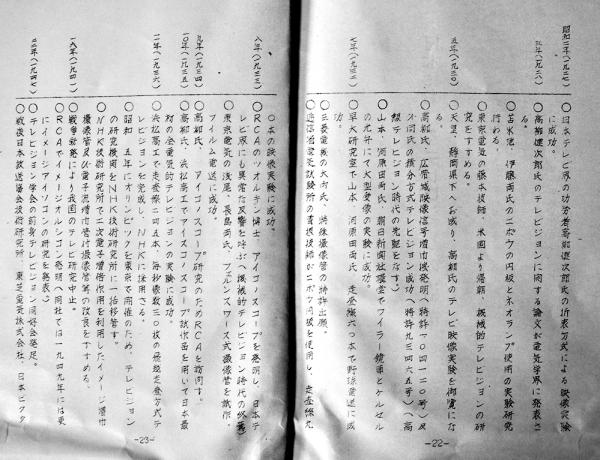 昭和二年(一九二七)
○日本テレビ界の功労者高柳健次郎氏の折衷方式による映像実験
に成功。
三年(一九二八)
○高柳健次郎氏のテレビジョンに関する論文が電気学界に発表さ
る。
○苫米地、伊藤両氏のニポウの円板とネオランプ使用の実験研究
行わる。
○東京電気の藤本技師、米国より帰朝、機械的テレビジョンの研
究をすすめる。
五年(一九三〇)
○天皇、静岡県下へお成り、高柳氏のテレビ映像実験を御覧にな
る。
○高柳氏、広帯域映像信号増巾機発明(特許一〇四一二〇号)及
不同氏の積分方式テレビジョン成功(特許九三四六五号)(高
級テレビジョン時代の先駆をなす)
○山本、河原田両氏、朝日新聞社講堂でワイラー鏡車とケルセル
の光弁にて大型受像の実験に成功。
七年(一九三二)
○早大研究室で山本、河原田両氏、走査線六〇本で野球電送に成
功。
○三菱電機の大内氏、特殊撮像管の特許出願。
○逓信省電気試験所の曽根技師がニポウ円板を使用し、走査線九
-22-
〇本の映像実験に成功。
八年(一九三三)
○RCAのツオルキン博士、アイコノスコープを発明し、日本テ
レビ界にも異常な反響を呼ぶ(機械的テレビジョン時代の終焉)
○東京電気の浅尾、長島両氏、フェルンスワース式撮像管を試作。
フイルム電送に成功。
九年(一九三四)
○高柳氏、アイコノスコープ研究のためRCAを訪問す。
一〇年(一九三五)
○高柳氏、浜松高工でアイコノスコープ試作品を用いて日本最
初の全電気的テレビジョンの実験に成功
一一年(一九三六)
○浜松高工で走査線二四五本、毎秒像数三〇枚の飛越走査方式テ
レビジョンを完成し、NHKに採用さる。
○昭和一五年にオリンピックを東京で開催のため、テレビジョン
の研究機関をNHK技術研究所に一括移管す。
○NHK技術研究所で二次電子増倍作用を利用したイメージ増巾
撮像管及び電子流増巾管付撮像管等の改良をすすめる。
一六年(一九四一)
○戦争勃発により我国のテレビ研究中止。
○RCAでイメージオルシコン発明(同社では一九四九年には更
にイメージアイソコンの研究を発表)
二二年(一九四七)
○テレビジョン学会の前身テレビジョン同好会発足。
○戦後日本放送協会技術研究所、東芝電気株式会社、日本ビクタ
-23-